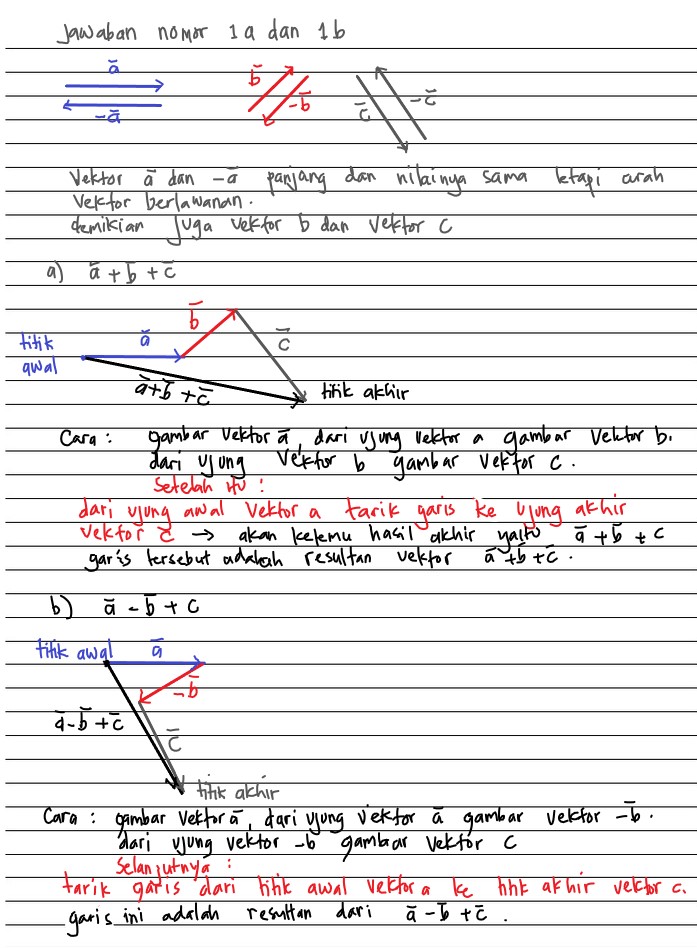 Jawaban nomor 1a dan 1b
ā b̄ -b̄ c̄ -c̄
-ā
Vektor ā dan -ā panjang dan nilainya sama tetapi arah
Vektor berlawanan.
demikian Juga vektor b dan vektor c
a) ā + b̄ + c̄
titik awal ā b̄ c̄
ā+b̄+c̄ titik akhir
Cara : gambar vektor ā, dari ujung vektor a gambar vektor b.
dari ujung vektor b gambar vektor c.
Setelah itu :
dari ujung awal vektor a tarik garis ke ujung akhir
vektor c̄ → akan ketemu hasil akhir yaitu ā + b̄ + c
garis tersebut adalah resultan vektor ā+b̄+c̄.
b) ā - b̄ + c
titik awal ā
-b̄
ā-b̄+c̄ c̄
titik akhir
Cara : gambar vektor ā, dari ujung vektor ā gambar vektor -b̄.
dari ujung vektor -b gambar vektor c
Selanjutnya :
tarik garis dari titik awal vektor a ke titik akhir vektor c.
garis ini adalah resultan dari ā-b̄+c̄.